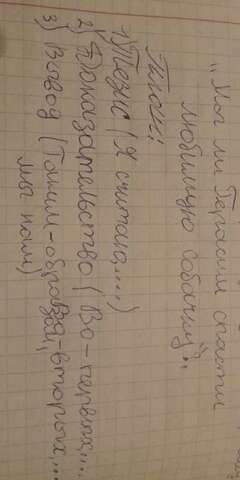 "Мог ли Герасим спасти
любимую собачку"..
План:
1) Тезис (Я считаю,....)
2) Доказательство (Во-первых,...
3) Вывод (Таким-образом, во-вторых,...
нам)